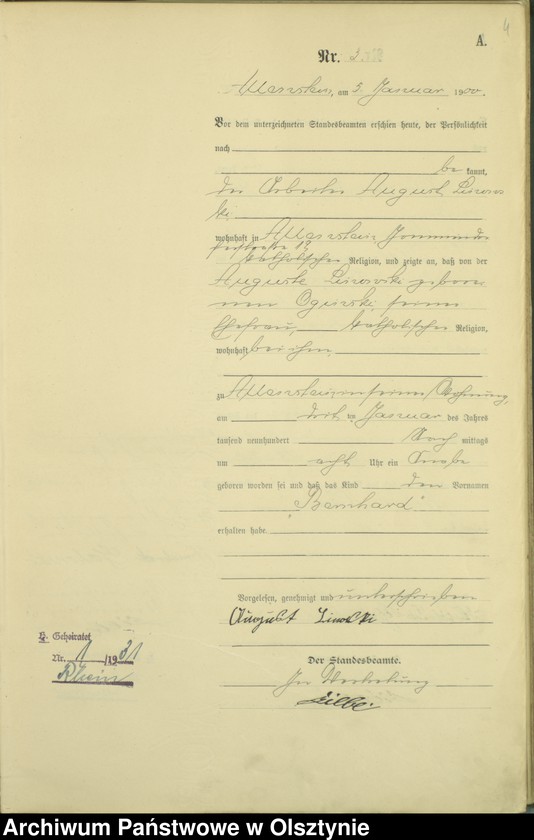 4
A.
Nr. 3.
Allenstein, am 3. Januar 1900.
Vor dem unterzeichneten Standesbeamten erschien heute, der Persönlichkeit
nach
be kannt,
der Arbeiter August Lisows
ki
wohnhaft in Allenstein,
katholischer Religion, und zeigte an, daß von der
Auguste Lisowski gebore
nen seiner
Ehefrau, katholischer Religion,
wohnhaft bei ihm
zu Allenstein in seiner Wohnung,
am Januar des Jahres
tausend neunhundert Nach mittags
um acht Uhr ein Knabe
geboren worden sei und daß das Kind den Vornamen
"Bernhard"
erhalten habe.
Vorgelesen, genehmigt und unterschrieben
August
Der Standesbeamte.
In Vertretung
H. Geheiratet
Nr. 1 /1931
Rhein
Archiwum Państwowe w Olsztynie